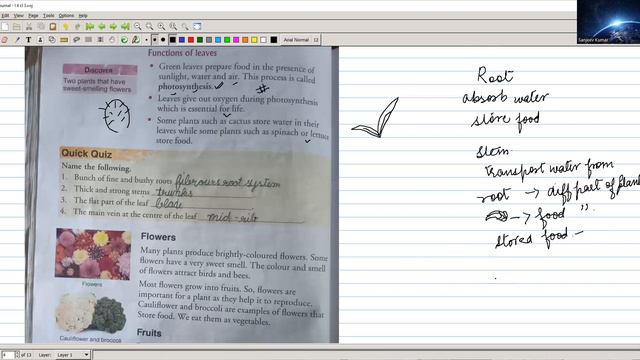 View Edit View Page Tools Options Help
Arial Normal 12
Sanjeev Kumar
Functions of leaves
• Green leaves prepare food in the presence of
sunlight, water and air. This process is called
photosynthesis.
• Leaves give out oxygen during photosynthesis
which is essential for life.
• Some plants such as cactus store water in their
leaves while some plants such as spinach or lettuce
store food.
DISCOVER
Two plants that have
sweet-smelling flowers
Quick Quiz
Name the following.
1. Bunch of fine and bushy roots fiberours root system
2. Thick and strong stems trunks
3. The flat part of the leaf blade
4. The main vein at the centre of the leaf mid-rib
Flowers
Many plants produce brightly-coloured flowers. Some
flowers have a very sweet smell. The colour and smell
of flowers attract birds and bees.
Most flowers grow into fruits. So, flowers are
important for a plant as they help it to reproduce.
Cauliflower and broccoli are examples of flowers that
Store food. We eat them as vegetables.
Fruits
Flowers
Cauliflower and broccoli
Root
absorb water
store food
Stem
transport water from
root → diff part of plant
→ food "
Stored food -
4 of 13 Layer: Layer 1